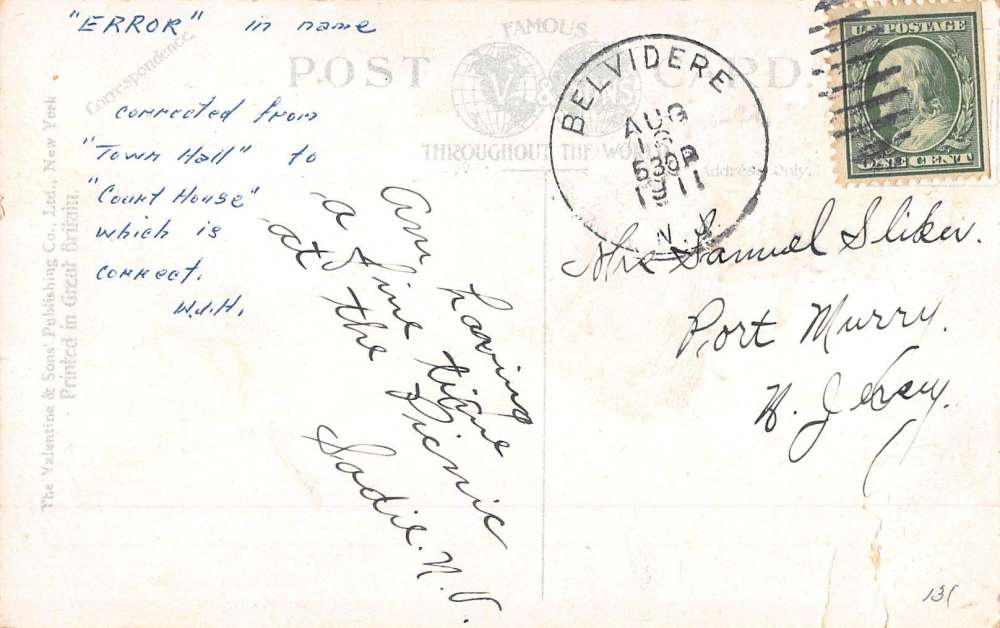 "ERROR" in name
corrected from
"Town Hall" to
"Court House"
which is
correct.
W.J.H.
Correspondence
POST CARD.
FAMOUS
V. & SONS
THROUGHOUT THE WORLD
Address Only.
The Valentine & Sons' Publishing Co., Ltd., New York
Printed in Great Britain.
BELVIDERE
AUG
530P
1911
N.J.
U.S. POSTAGE
ONE CENT
Am having
a fine time
at the Picnic
Sadie. N. V.
Mrs Samuel Sliker.
Port Murry.
N. Jersey.